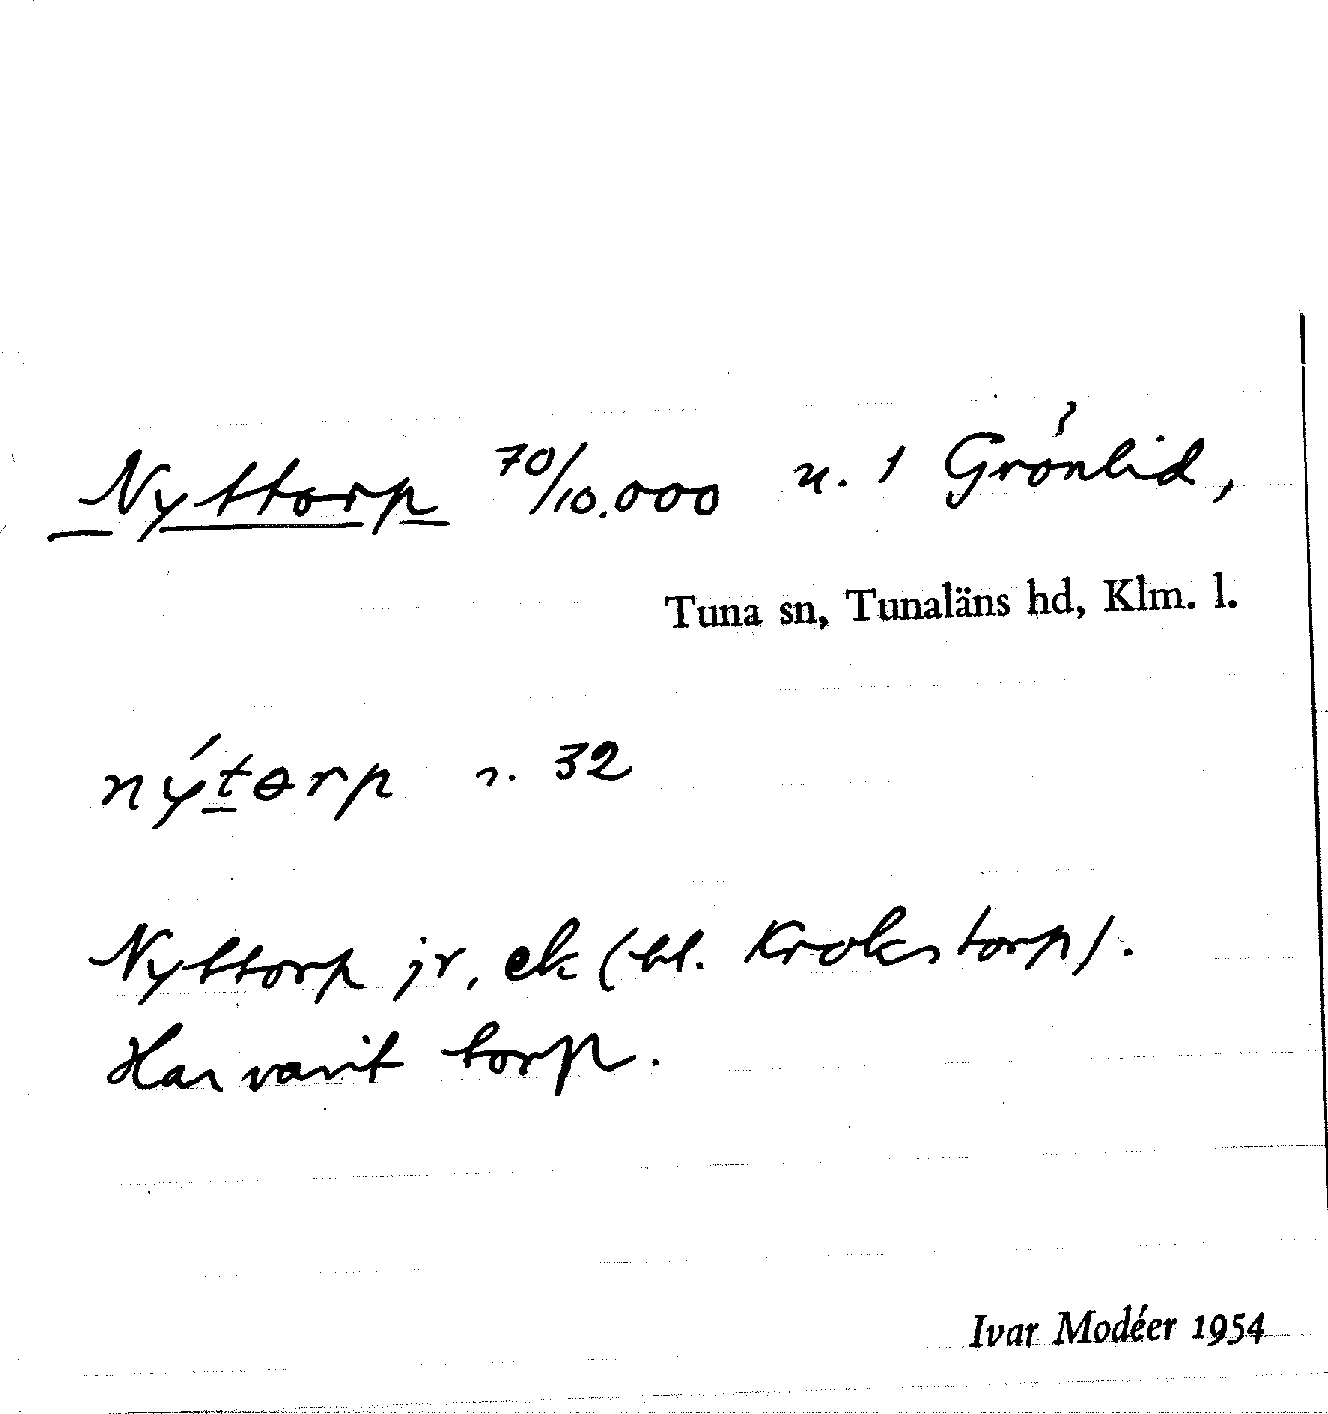 Nyttorp 70/10.000 u. 1 Grönlid,
Tuna sn, Tunaläns hd, Klm. l.
nýtɵrp r. 32
Nyttorp jr, ek (bl. Krokstorp).
Har varit torp.
Ivar Modéer 1954